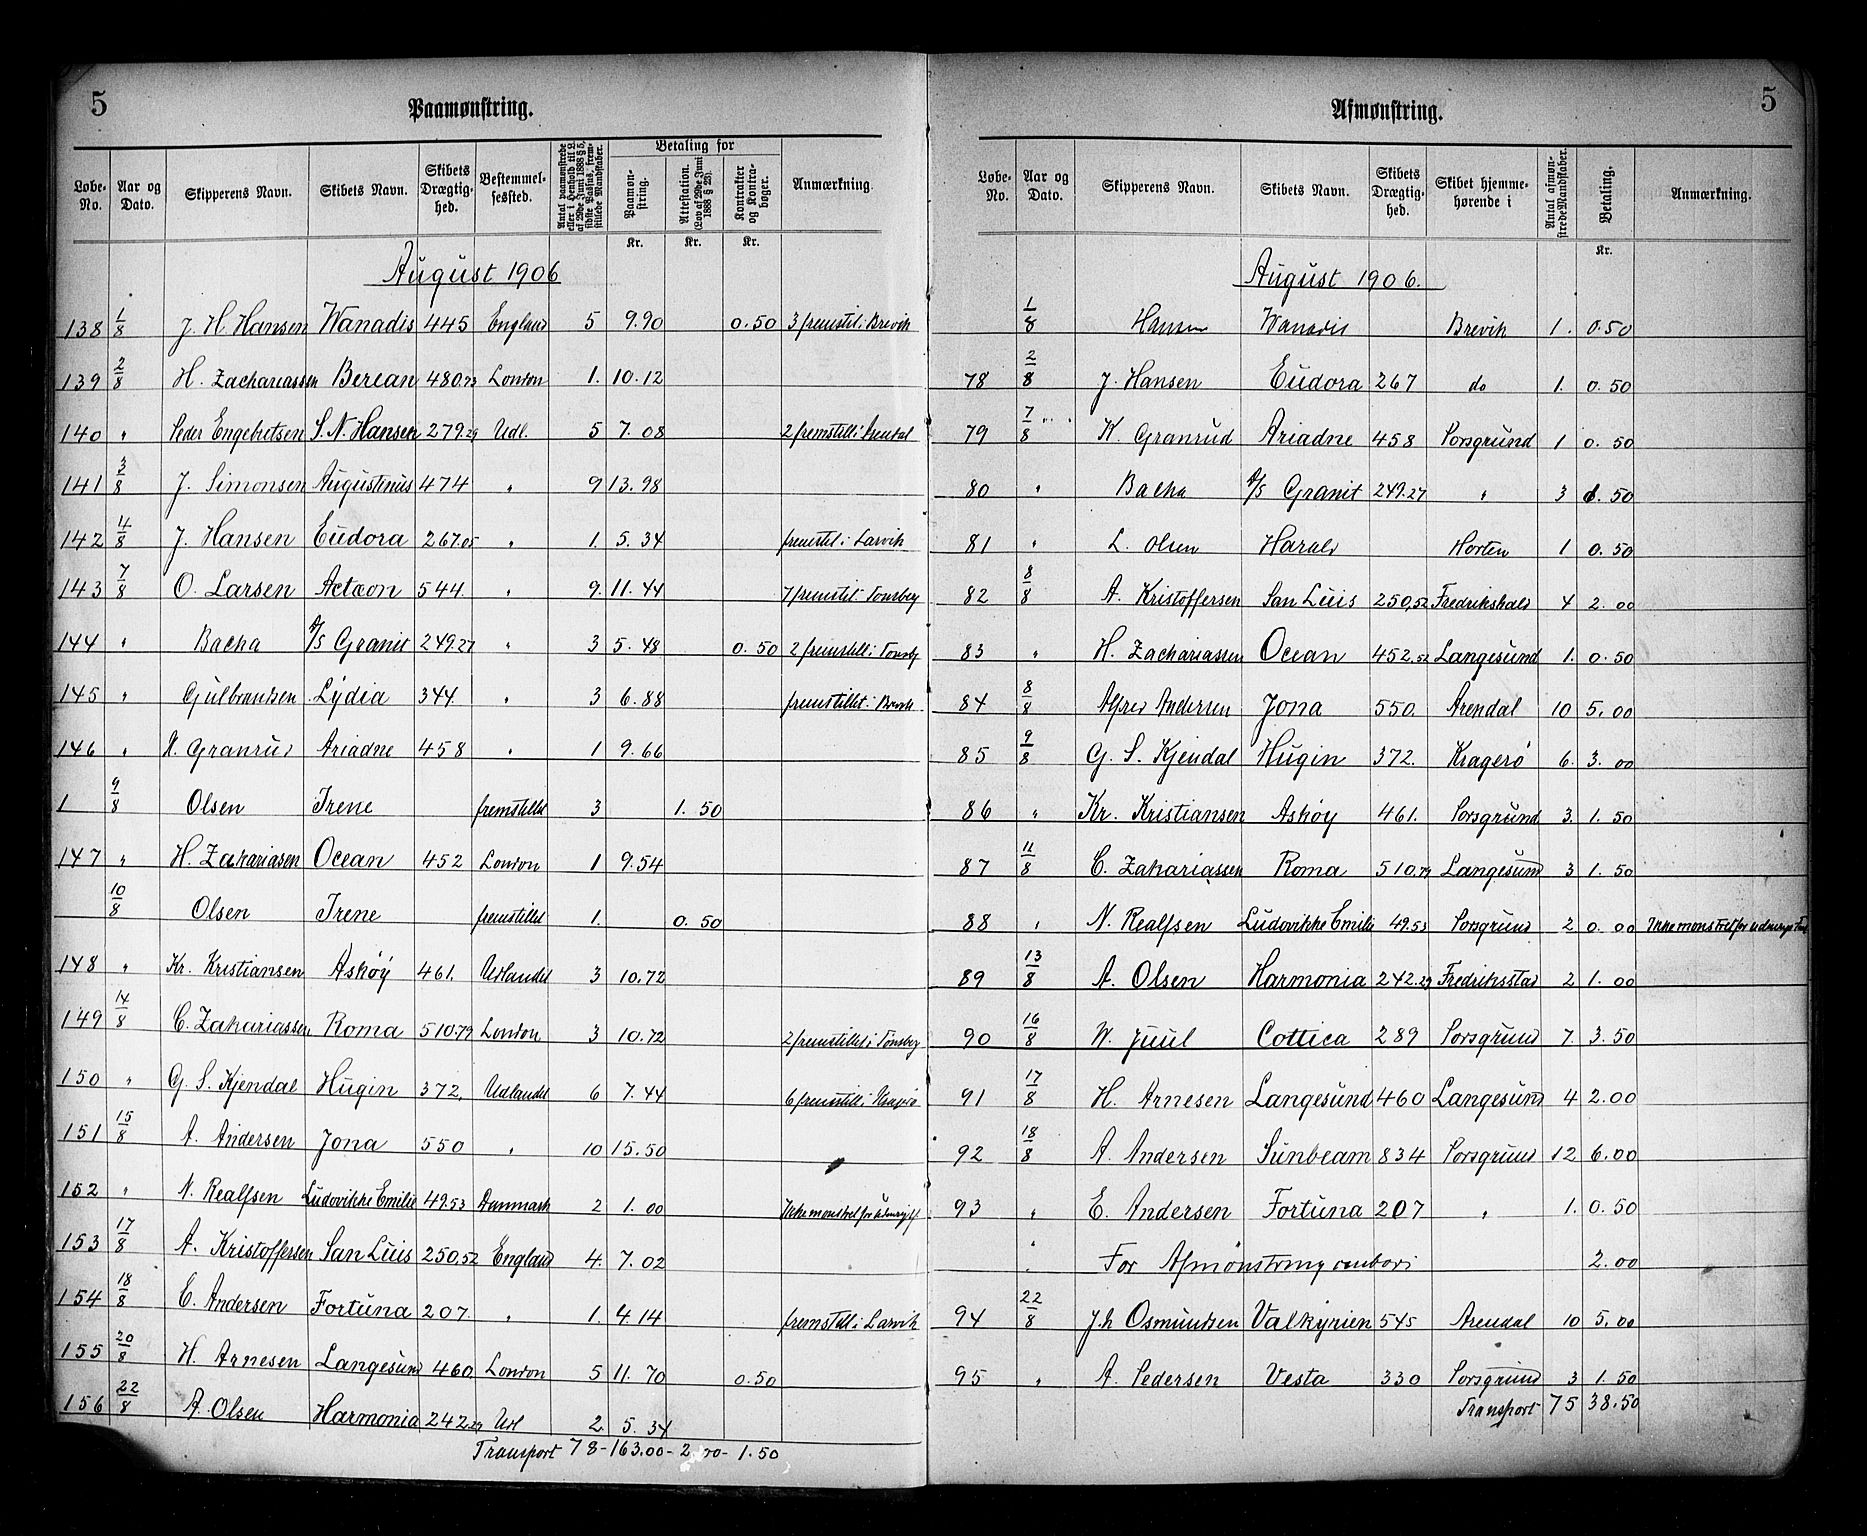 5
Paamønstring.
Løbe-No. | Aar og Dato. | Skipperens Navn. | Skibets Navn. | Skibets Drægtighed. | Bestemmelsessted. | Antal paamønstrede eller i Henhold til L. af 29de Juni 1888 § 5, sidste Passus, fremstillede Mandskaber. | Betaling for Paamønstring. Kr. | Attestation. (Lov af 29de Juni 1888 § 23). Kr. | Kontrakter og Kontrabøger. Kr. | Anmærkning.
August 1906
138 1/8 J. H. Hansen Wanadis 445 England 5 9.90 0.50 3 fremstil. i Brevik
139 2/8 H. Zachariassen Berean 480.73 London 1. 10.12
140 " Peder Engebretsen S. N. Hansen 279.29 Udl. 5 7.08 2 fremstill i Arendal
141 3/8 J. Simonsen Augustinus 474 " 9 13.98
142 4/8 J. Hansen Eudora 267.05 " 1. 5.34 fremstil i Larvik
143 7/8 O. Larsen Actæon 544. " 9. 11.44 7 fremstil. Tønsberg
144 " Bacha A/S Granit 249.27 " 3 5.48 0.50 2 fremstill i Tønsbg
145 " Gulbrandsen Lydia 344. " 3 6.88 fremstillet i Brevik
146 " K. Granrud Ariadne 458 " 1 9.66
1 9/8 Olsen Irene fremstillet 3 1.50
147 " H. Zakariasen Ocean 452 London 1 9.54
10/8 Olsen Irene fremstillet 1. 0.50
148 " Kr. Kristiansen Askøy 461. Udlandet 3 10.72
149 14/8 C. Zakariassen Roma 510.79 London 3 10.72 2 fremstillet i Tønsberg
150 " G. S. Kjendal Hugin 372. Udlandet 6 7.44 6 fremstill i Kragerø
151 15/8 A. Andersen Jona 550 " 10 15.50
152 " N. Realfsen Ludovikke Emilie 49.53 Danmark 2 1.00 Ikke mønstret for
153 17/8 A. Kristoffersen San Luis 250.52 England 4. 7.02
154 18/8 E. Andersen Fortuna 207. " 1. 4.14 fremstill i Larvik
155 20/8 H. Arnesen Langesund 460 London 5 11.70 0.50
156 22/8 A. Olsen Harmonia 242.29 Udl 2 5.34
Transport 78 - 163.00 - 2.00 - 1.50
5
Afmønstring.
Løbe-No. | Aar og Dato. | Skipperens Navn. | Skibets Navn. | Skibets Drægtighed. | Skibet hjemmehørende i | Antal afmønstrede Mandskaber. | Betaling. Kr. | Anmærkning.
August 1906.
1/8 Hansen Wanadis Brevik 1. 0.50
78 2/8 J. Hansen Eudora 267 do 1. 0.50
79 7/8 K. Granrud Ariadne 458 Porsgrund 1 0.50
80 " Bacha A/S Granit 249.27 " 3 1.50
81 " L. Olsen Harald Horten 1 0.50
82 8/8 A. Kristoffersen San Luis 250,52 Fredrikshald 4 2.00
83 " H. Zachariassen Ocean 452.52 Langesund 1. 0.50
84 8/8 Alfred Andersen Jona 550. Arendal 10 5.00
85 9/8 G. S. Kjendal Hugin 372. Kragerø 6. 3.00
86 " Kr. Kristiansen Askøy 461. Porsgrund 3. 1.50
87 11/8 C. Zakariassen Roma 510.79 Langesund 3 1.50
88 " N. Realfsen Ludovikke Emilie 49.53 Porsgrund 2 0.00 Ikke mønstret for
89 13/8 A. Olsen Harmonia 242.29 Fredriksstad 2 1.00
90 16/8 W. Juul Cottica 289 Porsgrund 7. 3.50
91 17/8 H. Arnesen Langesund 460 Langesund 4 2.00
92 18/8 A. Andersen Sunbeam 834 Porsgrund 12 6.00
93 " E. Andersen Fortuna 207 " 1. 0.50
" For Afmønstring ombord 2.00
94 22/8 J.h Osmundsen Valkyrien 545 Arendal 10 5.00
95 " A. Pedersen Vesta 330 Porsgrund 3 1.50
Transport 75 38.50